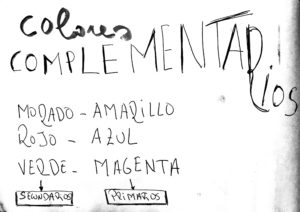 colores
COMPLEMENTARIOS
MORADO - AMARILLO
ROJO - AZUL
VERDE - MAGENTA
SEGUNDARIOS PRIMARIOS